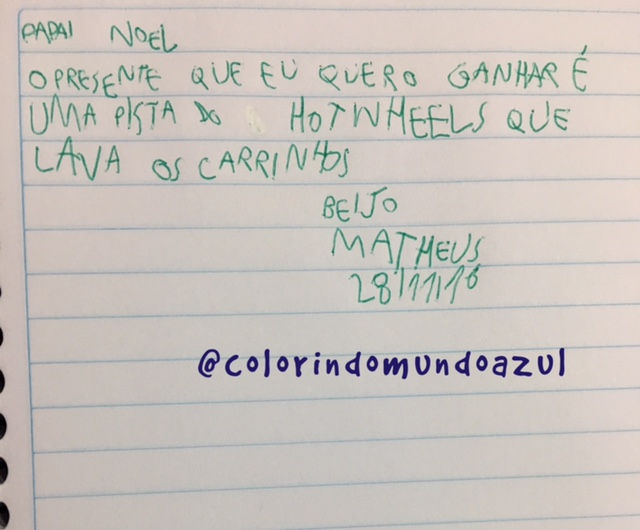 PAPAI NOEL
O PRESENTE QUE EU QUERO GANHAR É
UMA PISTA DO HOTWHEELS QUE
LAVA OS CARRINHOS
BEIJO
MATHEUS
28/11/16
@colorindomundoazul